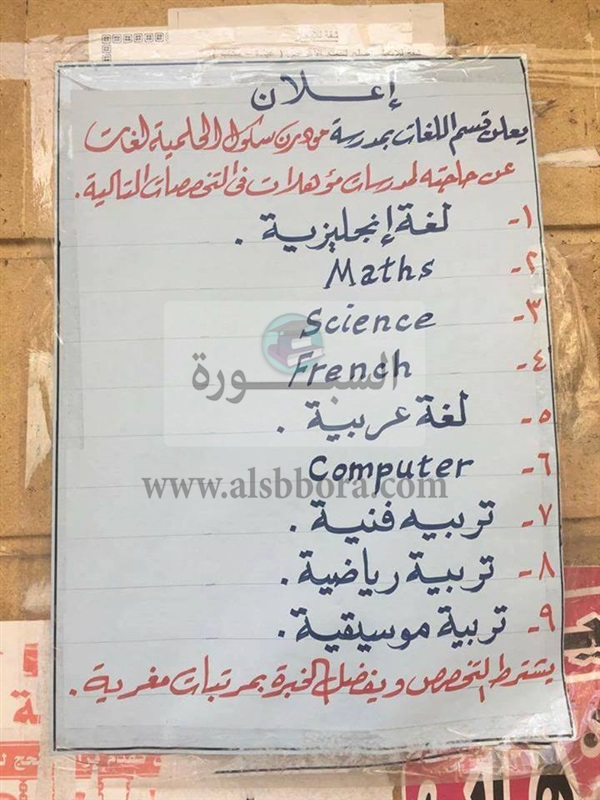 إعلان
يعلن قسم اللغات بمدرسة مودرن سكول الحلمية لغات
عن حاجته لمدرسات مؤهلات في التخصصات التالية.
١- لغة إنجليزية.
٢- Maths
٣- Science
٤- French
السبورة
٥- لغة عربية.
٦- Computer
www.alsbbora.com
٧- تربيه فنية.
٨- تربية رياضية.
٩- تربية موسيقية.
يشترط التخصص ويفضل الخبرة بمرتبات مغرية.